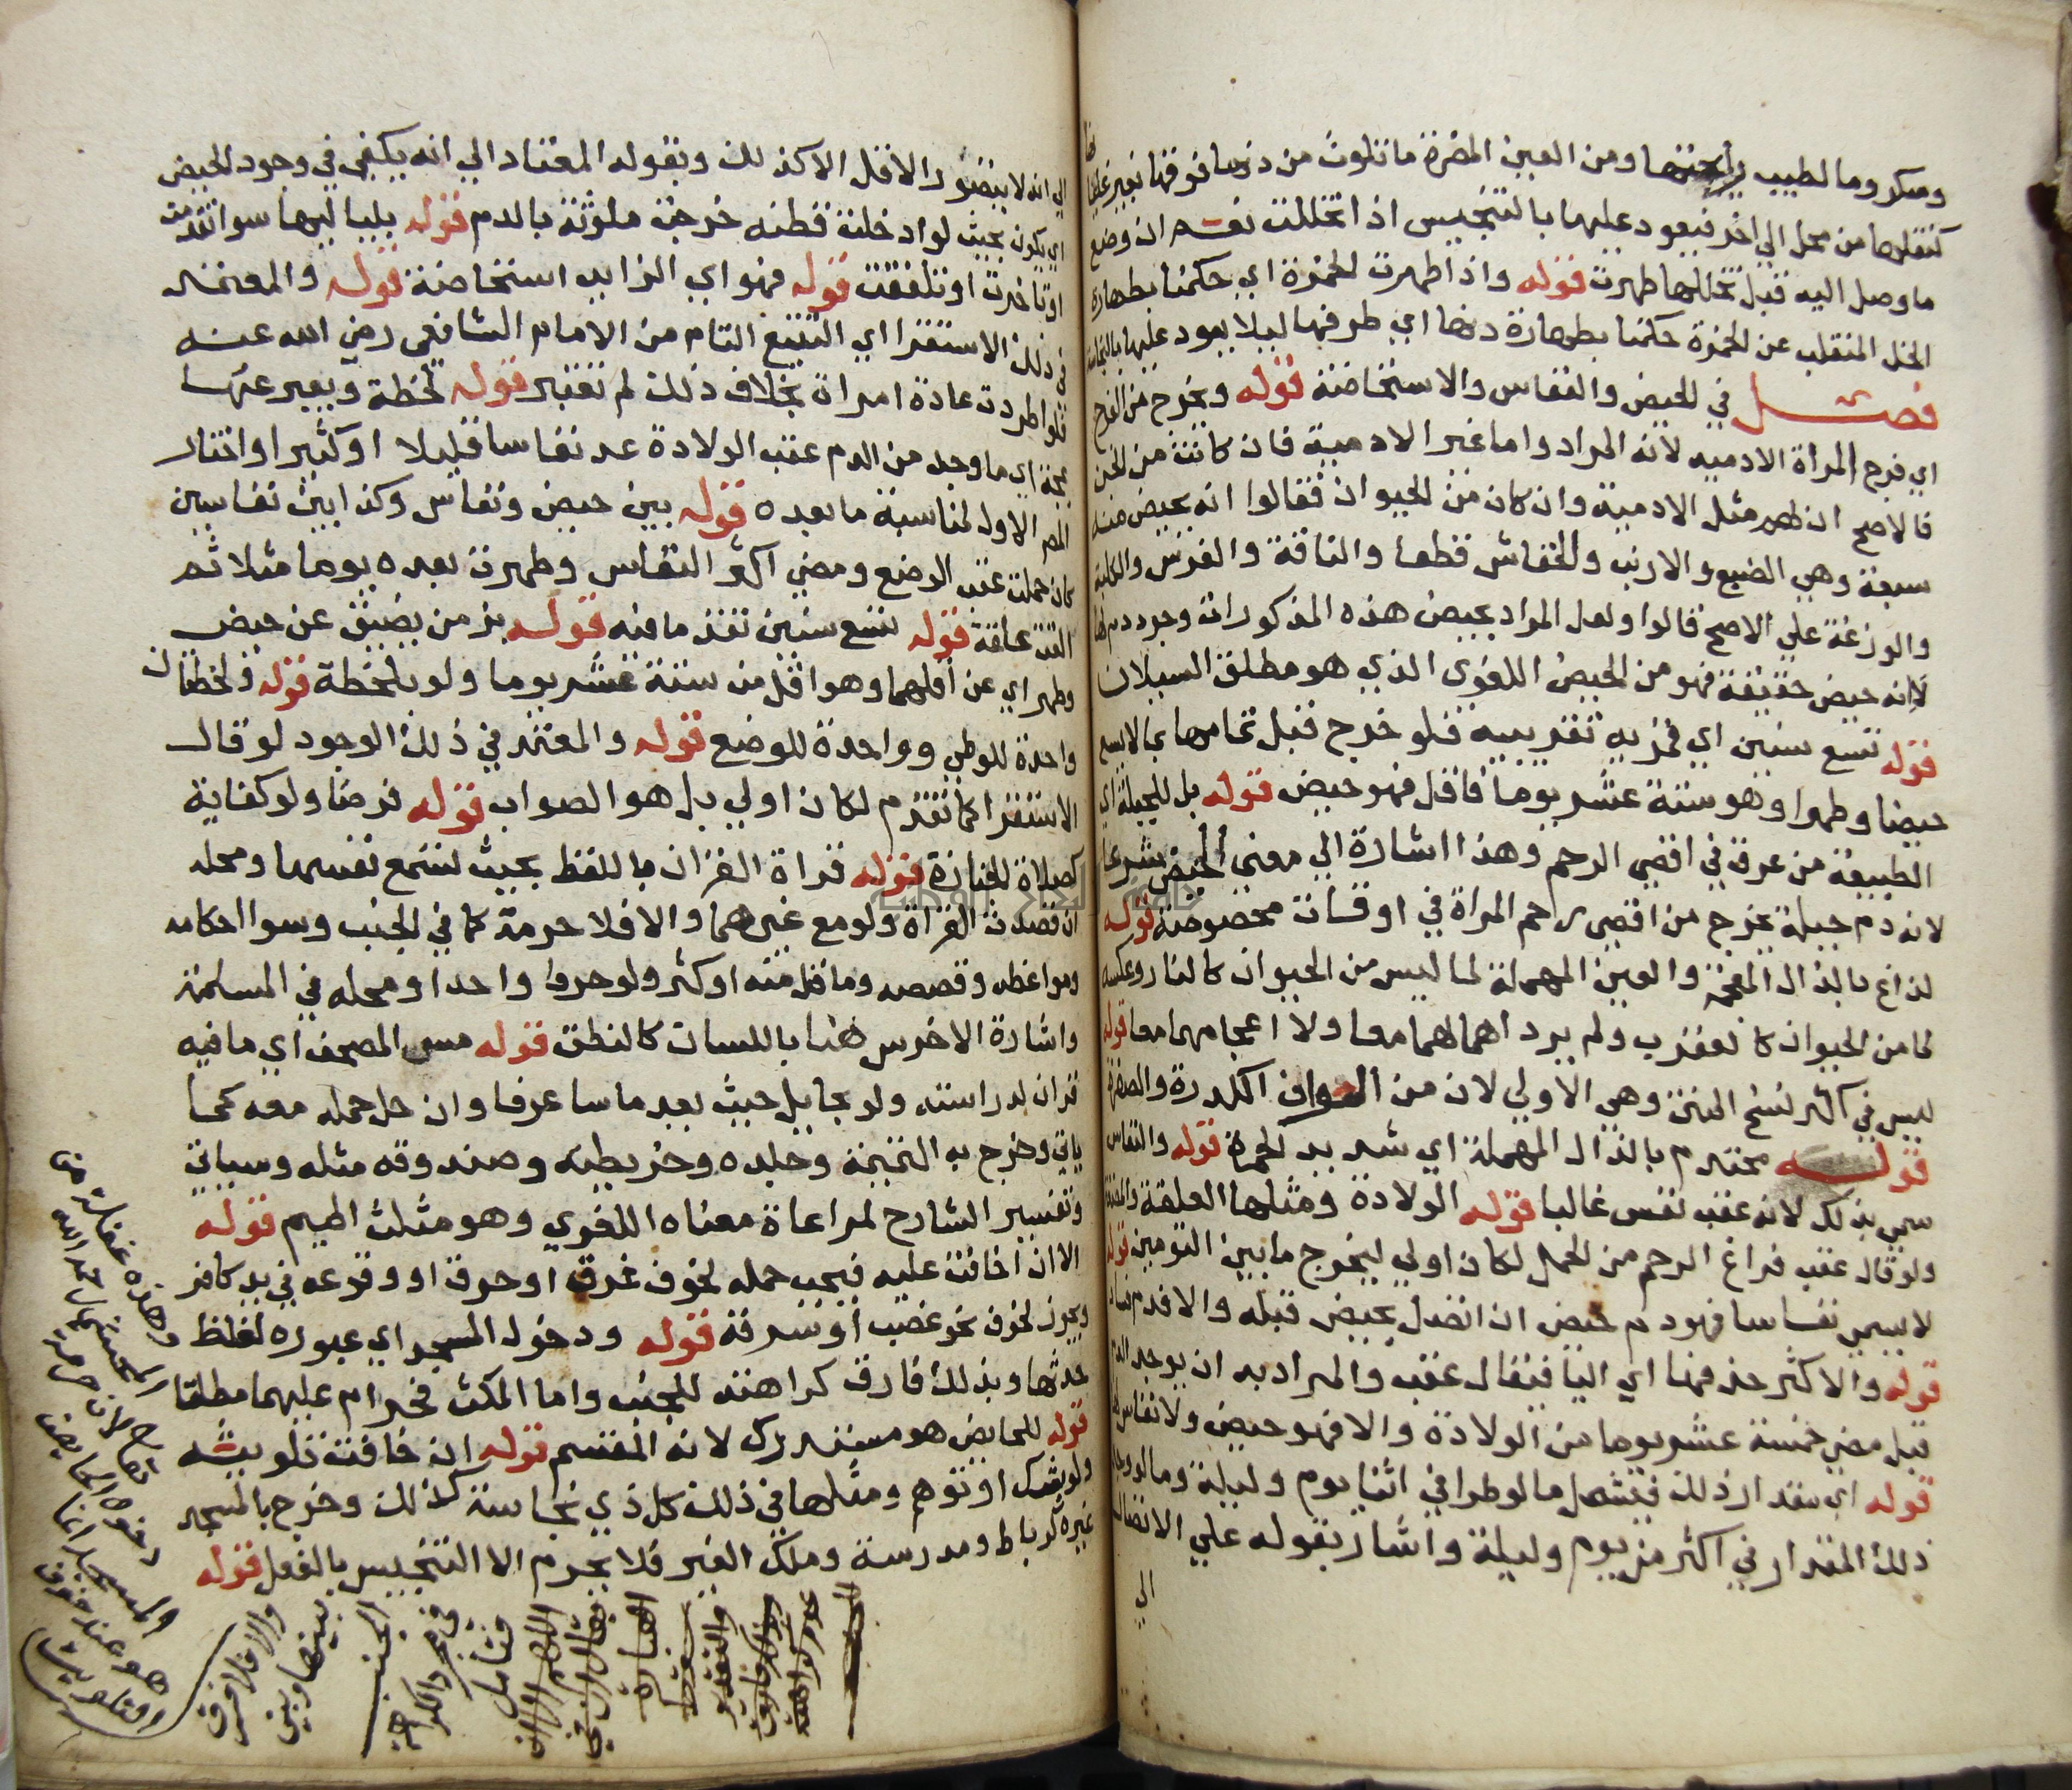 ومكر وما لطيب رائحتها ومن العين المضرة ما تلوث من دنها فوقها بغير غليا
كنقلها من محل الي اخر فيعود عليها بالتنجيس اذا تخللت نعم ان وضع
ما وصل اليه قبل تخللها طهرت قوله واذا طهرت الخمرة اي حكمنا بطهارة
الخل المنقلب عن الخمرة حكمنا بطهارة دنها اي ظرفها ليلا يعود عليها بالنجاسة
فصل في الحيض والنفاس والاستحاضة قوله ويخرج من الفرج
اي فرج المرأة الادميه لانه المراد واما غير الادمية فان كانت من الجن
فالاصح ان لهم مثل الادمية وان كان من الحيوان فقالوا انه يحيض منه
سبعة وهي الضبع والارنب والخفاش قطعا والناقة والفرس والكلبة
والوزغة علي الاصح قالوا ولعل المراد بحيض هذه المذكورات وجود دم لها
لا انه حيض حقيقة فهو من الحيض اللغوي الذي هو مطلق السيلان
قوله تسع سنين اي قمرية تقريبيه فلو خرج قبل تمامها بما لا يسع
حيضا وطهرا وهو ستة عشر يوما فاقل فهو حيض قوله بل للجبلة اي
الطبيعة من عرق في اقصي الرحم وهذا اشارة الي معني الحيض شرعا
لانه دم جبلة يخرج من اقصى رحم المراة في اوقات مخصوصة قوله
لذاع بالذال المعجمة والعين المهملة لما ليس من الحيوان كالنار وعكسه
لما من الحيوان كالعقرب ولم يرد اهمالهما معا ولا اعجامهما معا قوله
ليس في اكثر نسخ المتن وهي الاولي لان من الوان الكدرة والصفرة
قوله محتدم بالدال المهملة اي شديد الحمرة قوله والنفاس
سمي بذلك لانه عقب نفس غالبا قوله الولادة ومثلها العلقة والمضغة
ولو قال عقب فراغ الرحم من الحمل لكان اولي ليخرج ما بين التومين قوله
لا يسمي نفاسا فهو دم حيض ان اتصل بحيض قبله والا فدم فساد
قوله والاكثر حذفها اي اليا فيقال عقب والمراد به ان يوجد الدم
قبل مضي خمسة عشر يوما من الولادة والا فهو حيض ولا نفاس لها
قوله اي مقدار ذلك فيشمل ما لو طرا في اثنا يوم وليلة وما لو وجد
ذلك المقدار في اكثر من يوم وليلة واشار بقوله علي الاتصال
الي
الي انه لا يتصور الاقل الا كذلك وبقوله المعتاد الي انه يكفي في وجود الحيض
اي يكون بحيث لو ادخلت قطنه خرجت ملوثة بالدم قوله بلياليها سوا تقدمت
او تاخرت او تلفقت قوله فهو اي الزايد استحاضة قوله والمعتمد
في ذلك الاستقرا اي التتبع التام من الامام الشافعي رضي الله عنه
فلو اطردت عادة امراة بخلاف ذلك لم تعتبر قوله لحظة ويعبر عنها
بمجة اي ما وجد من الدم عقب الولادة عد نفاسا قليلا او كثيرا واختار
المص الاول لمناسبة ما بعده قوله بين حيض ونفاس وكذا بين نفاسين
كان حملت عقب الوضع ومضي اكثر النفاس وطهرت بعده يوما مثلا ثم
القت علقة قوله تسع سنين تقدم ما فيه قوله بزمن يضيق عن حيض
وطهر اي عن اقلهما وهو اقل من ستة عشر يوما ولو بلحظة قوله ولحظتان
واحدة للوطي وواحدة للوضع قوله والمعتمد في ذلك الوجود لو قال
الاستقرا كما تقدم لكان اولي بل هو الصواب قوله فرضا ولو كفاية
كصلاة الجنازة قوله قراة القران باللفظ بحيث تسمع نفسها ومحله
ان قصدت القراة ولو مع غيرها والا فلا حرمة كما في الجنب وسوا احكامه
ومواعظه وقصصه وما قل منه او كثر ولو حرفا واحدا ومحله في المسلمة
واشارة الاخرس هنا باللسان كالنطق قوله مس المصحف اي ما فيه
قران لدراسته ولو بحايل حيث يعد ماسا عرفا وان حل حمله معه كما
ياتي وخرج به التميمة وجلده وخريطته وصندوقه مثله وسياتي
وتفسير الشارح لمراعاة معناه اللغوي وهو مثلث الميم قوله
الا ان اخافت عليه فيجب حمله لخوف غرق او حرق او وقوعه في يد كافر
ويجوز لخوف نحو غصب او سرقة قوله ودخول المسجد اي عبوره لغلظ
حدثها وبذلك فارق كراهته للجنب واما المكث فحرام عليهما مطلقا
قوله للحايض هو مستدرك لانه المقسم قوله ان خافت تلويثه
ولو بشك او توهم ومثلها في ذلك كل ذي نجاسة كذلك وخرج بالمسجد
غيره كرباط ومدرسة وملك الغير فلا يحرم الا التنجيس بالفعل قوله
وهذه غفلة من
المحشي
لان حرمة
دخول الحايض
المسجد انما
هو عند خوف
التلويث
والا فلا فرق
بينها وبين
الجنب
في
فتامل